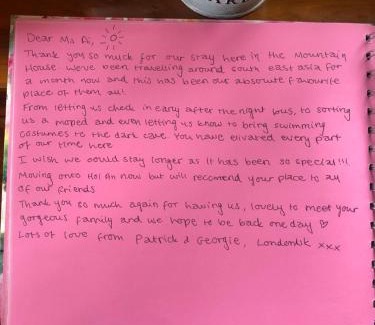 Dear Ms Ai,
Thank you so much for our stay here in the Mountain
House. We've been travelling around south east asia for
a month now and this has been our absolute favourite
place of them all!
From letting us check in early after the night bus, to sorting
us a moped and even letting us know to bring swimming
costumes to the dark cave. You have elivated every part
of our time here
I wish we could stay longer as it has been so special!!!
Moving onto Hoi An now but will recomend your place to all
of our friends
Thank you so much again for having us, lovely to meet your
gorgeous family and we hope to be back one day ♡
Lots of love from Patrick & Georgie, London xxx